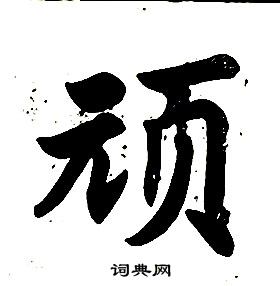 顽
词典网